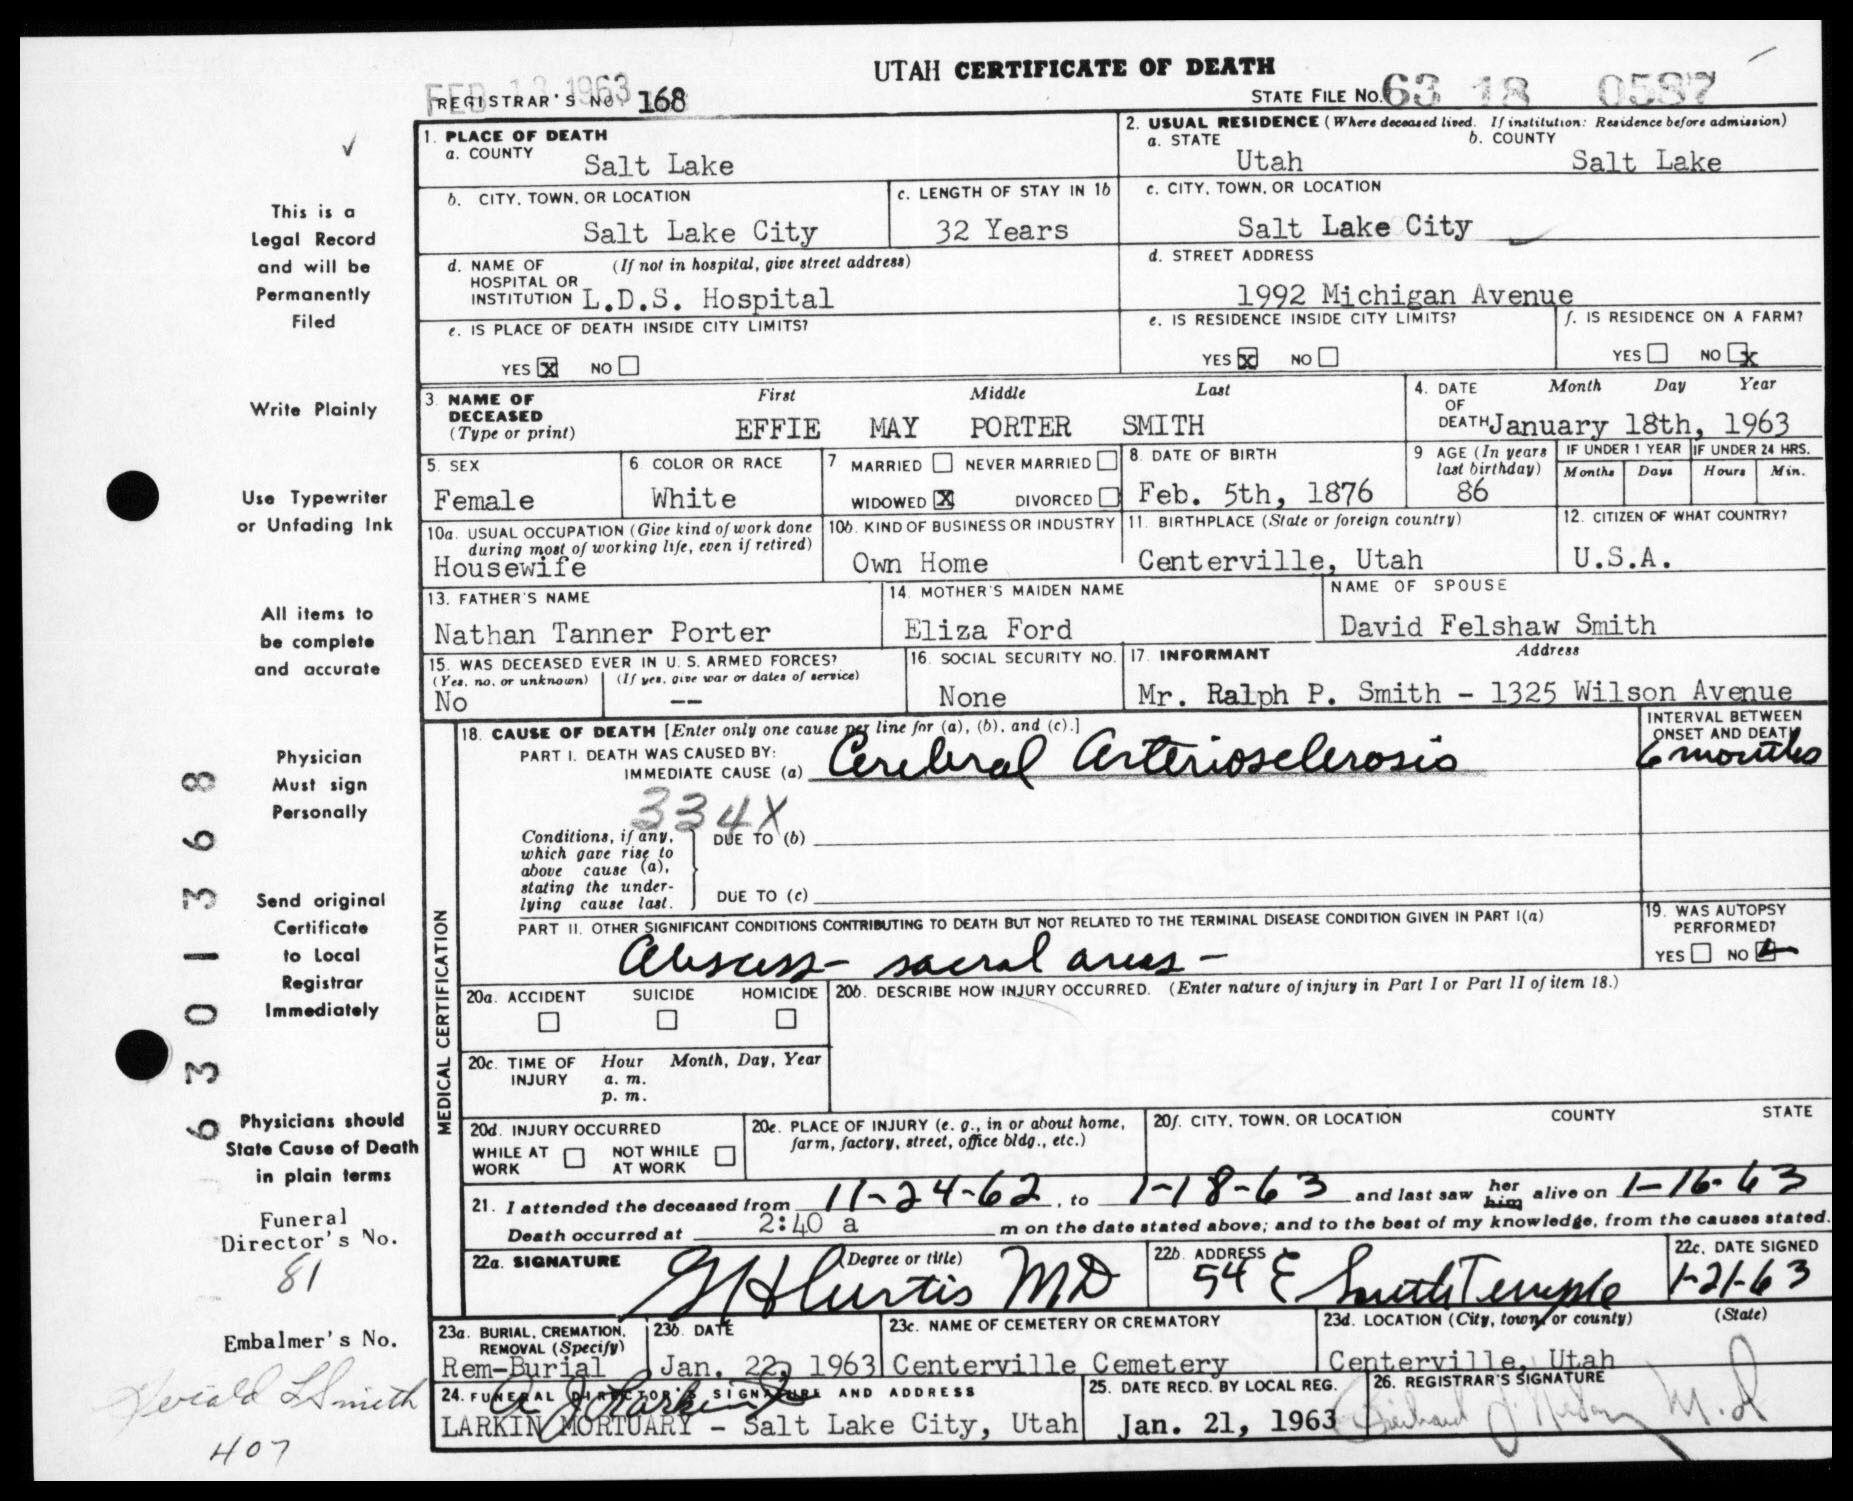 UTAH CERTIFICATE OF DEATH
FEB 13 1963
REGISTRAR'S NO. 168
STATE FILE NO. 63 18 0587
1. PLACE OF DEATH
a. COUNTY Salt Lake
2. USUAL RESIDENCE (Where deceased lived. If institution: Residence before admission)
a. STATE Utah b. COUNTY Salt Lake
b. CITY, TOWN, OR LOCATION Salt Lake City
c. LENGTH OF STAY IN 1b 32 Years
c. CITY, TOWN, OR LOCATION Salt Lake City
d. NAME OF HOSPITAL OR INSTITUTION (If not in hospital, give street address) L.D.S. Hospital
d. STREET ADDRESS 1992 Michigan Avenue
e. IS PLACE OF DEATH INSIDE CITY LIMITS?
YES X NO
e. IS RESIDENCE INSIDE CITY LIMITS?
YES X NO
f. IS RESIDENCE ON A FARM?
YES NO X
3. NAME OF DECEASED (Type or print)
First Middle Last
EFFIE MAY PORTER SMITH
4. DATE OF DEATH Month Day Year
January 18th, 1963
5. SEX Female
6. COLOR OR RACE White
7. MARRIED NEVER MARRIED
WIDOWED X DIVORCED
8. DATE OF BIRTH Feb. 5th, 1876
9. AGE (In years last birthday) 86
IF UNDER 1 YEAR Months Days
IF UNDER 24 HRS. Hours Min.
10a. USUAL OCCUPATION (Give kind of work done during most of working life, even if retired)
Housewife
10b. KIND OF BUSINESS OR INDUSTRY
Own Home
11. BIRTHPLACE (State or foreign country)
Centerville, Utah
12. CITIZEN OF WHAT COUNTRY?
U.S.A.
13. FATHER'S NAME
Nathan Tanner Porter
14. MOTHER'S MAIDEN NAME
Eliza Ford
NAME OF SPOUSE
David Felshaw Smith
15. WAS DECEASED EVER IN U. S. ARMED FORCES?
(Yes, no, or unknown) (If yes, give war or dates of service)
No --
16. SOCIAL SECURITY NO.
None
17. INFORMANT Address
Mr. Ralph P. Smith - 1325 Wilson Avenue
MEDICAL CERTIFICATION
18. CAUSE OF DEATH [Enter only one cause per line for (a), (b), and (c).]
INTERVAL BETWEEN ONSET AND DEATH
PART I. DEATH WAS CAUSED BY:
IMMEDIATE CAUSE (a) Cerebral Arteriosclerosis
6 months
334X
Conditions, if any, which gave rise to above cause (a), stating the underlying cause last.
DUE TO (b)
DUE TO (c)
PART II. OTHER SIGNIFICANT CONDITIONS CONTRIBUTING TO DEATH BUT NOT RELATED TO THE TERMINAL DISEASE CONDITION GIVEN IN PART I(a)
Abscess - sacral area -
19. WAS AUTOPSY PERFORMED?
YES NO
20a. ACCIDENT SUICIDE HOMICIDE
20b. DESCRIBE HOW INJURY OCCURRED. (Enter nature of injury in Part I or Part II of item 18.)
20c. TIME OF INJURY Hour Month, Day, Year
a. m.
p. m.
20d. INJURY OCCURRED
WHILE AT WORK NOT WHILE AT WORK
20e. PLACE OF INJURY (e. g., in or about home, farm, factory, street, office bldg., etc.)
20f. CITY, TOWN, OR LOCATION COUNTY STATE
21. I attended the deceased from 11-24-62, to 1-18-63 and last saw her him alive on 1-16-63
Death occurred at 2:40 a m on the date stated above; and to the best of my knowledge, from the causes stated.
22a. SIGNATURE (Degree or title)
G H Curtis MD
22b. ADDRESS
54 E South Temple
22c. DATE SIGNED
1-21-63
23a. BURIAL, CREMATION, REMOVAL (Specify)
Rem-Burial
23b. DATE
Jan. 22, 1963
23c. NAME OF CEMETERY OR CREMATORY
Centerville Cemetery
23d. LOCATION (City, town, or county) (State)
Centerville, Utah
24. FUNERAL DIRECTOR'S SIGNATURE AND ADDRESS
LARKIN MORTUARY - Salt Lake City, Utah
25. DATE RECD. BY LOCAL REG.
Jan. 21, 1963
26. REGISTRAR'S SIGNATURE
M.D
This is a
Legal Record
and will be
Permanently
Filed
Write Plainly
Use Typewriter
or Unfading Ink
All items to
be complete
and accurate
Physician
Must sign
Personally
Send original
Certificate
to Local
Registrar
Immediately
Physicians should
State Cause of Death
in plain terms
Funeral
Director's No.
81
Embalmer's No.
Smith
407
6 3 0 1 3 6 8